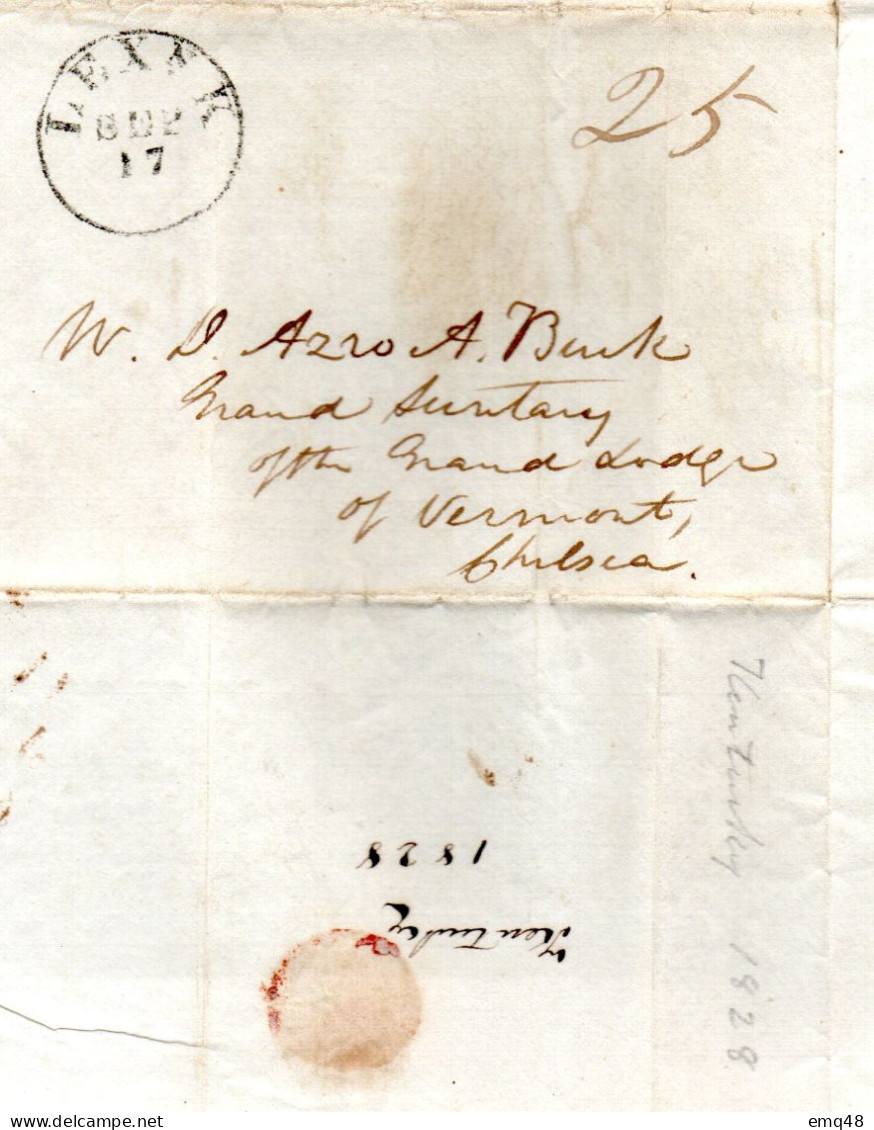 LEXY K
SEP
17
25
W. D. Azro A. Buck
Grand Secretary
of the Grand Lodge
of Vermont,
Chelsea.
Kentucky
1828
Kentucky 1828
delcampe.net
emq48